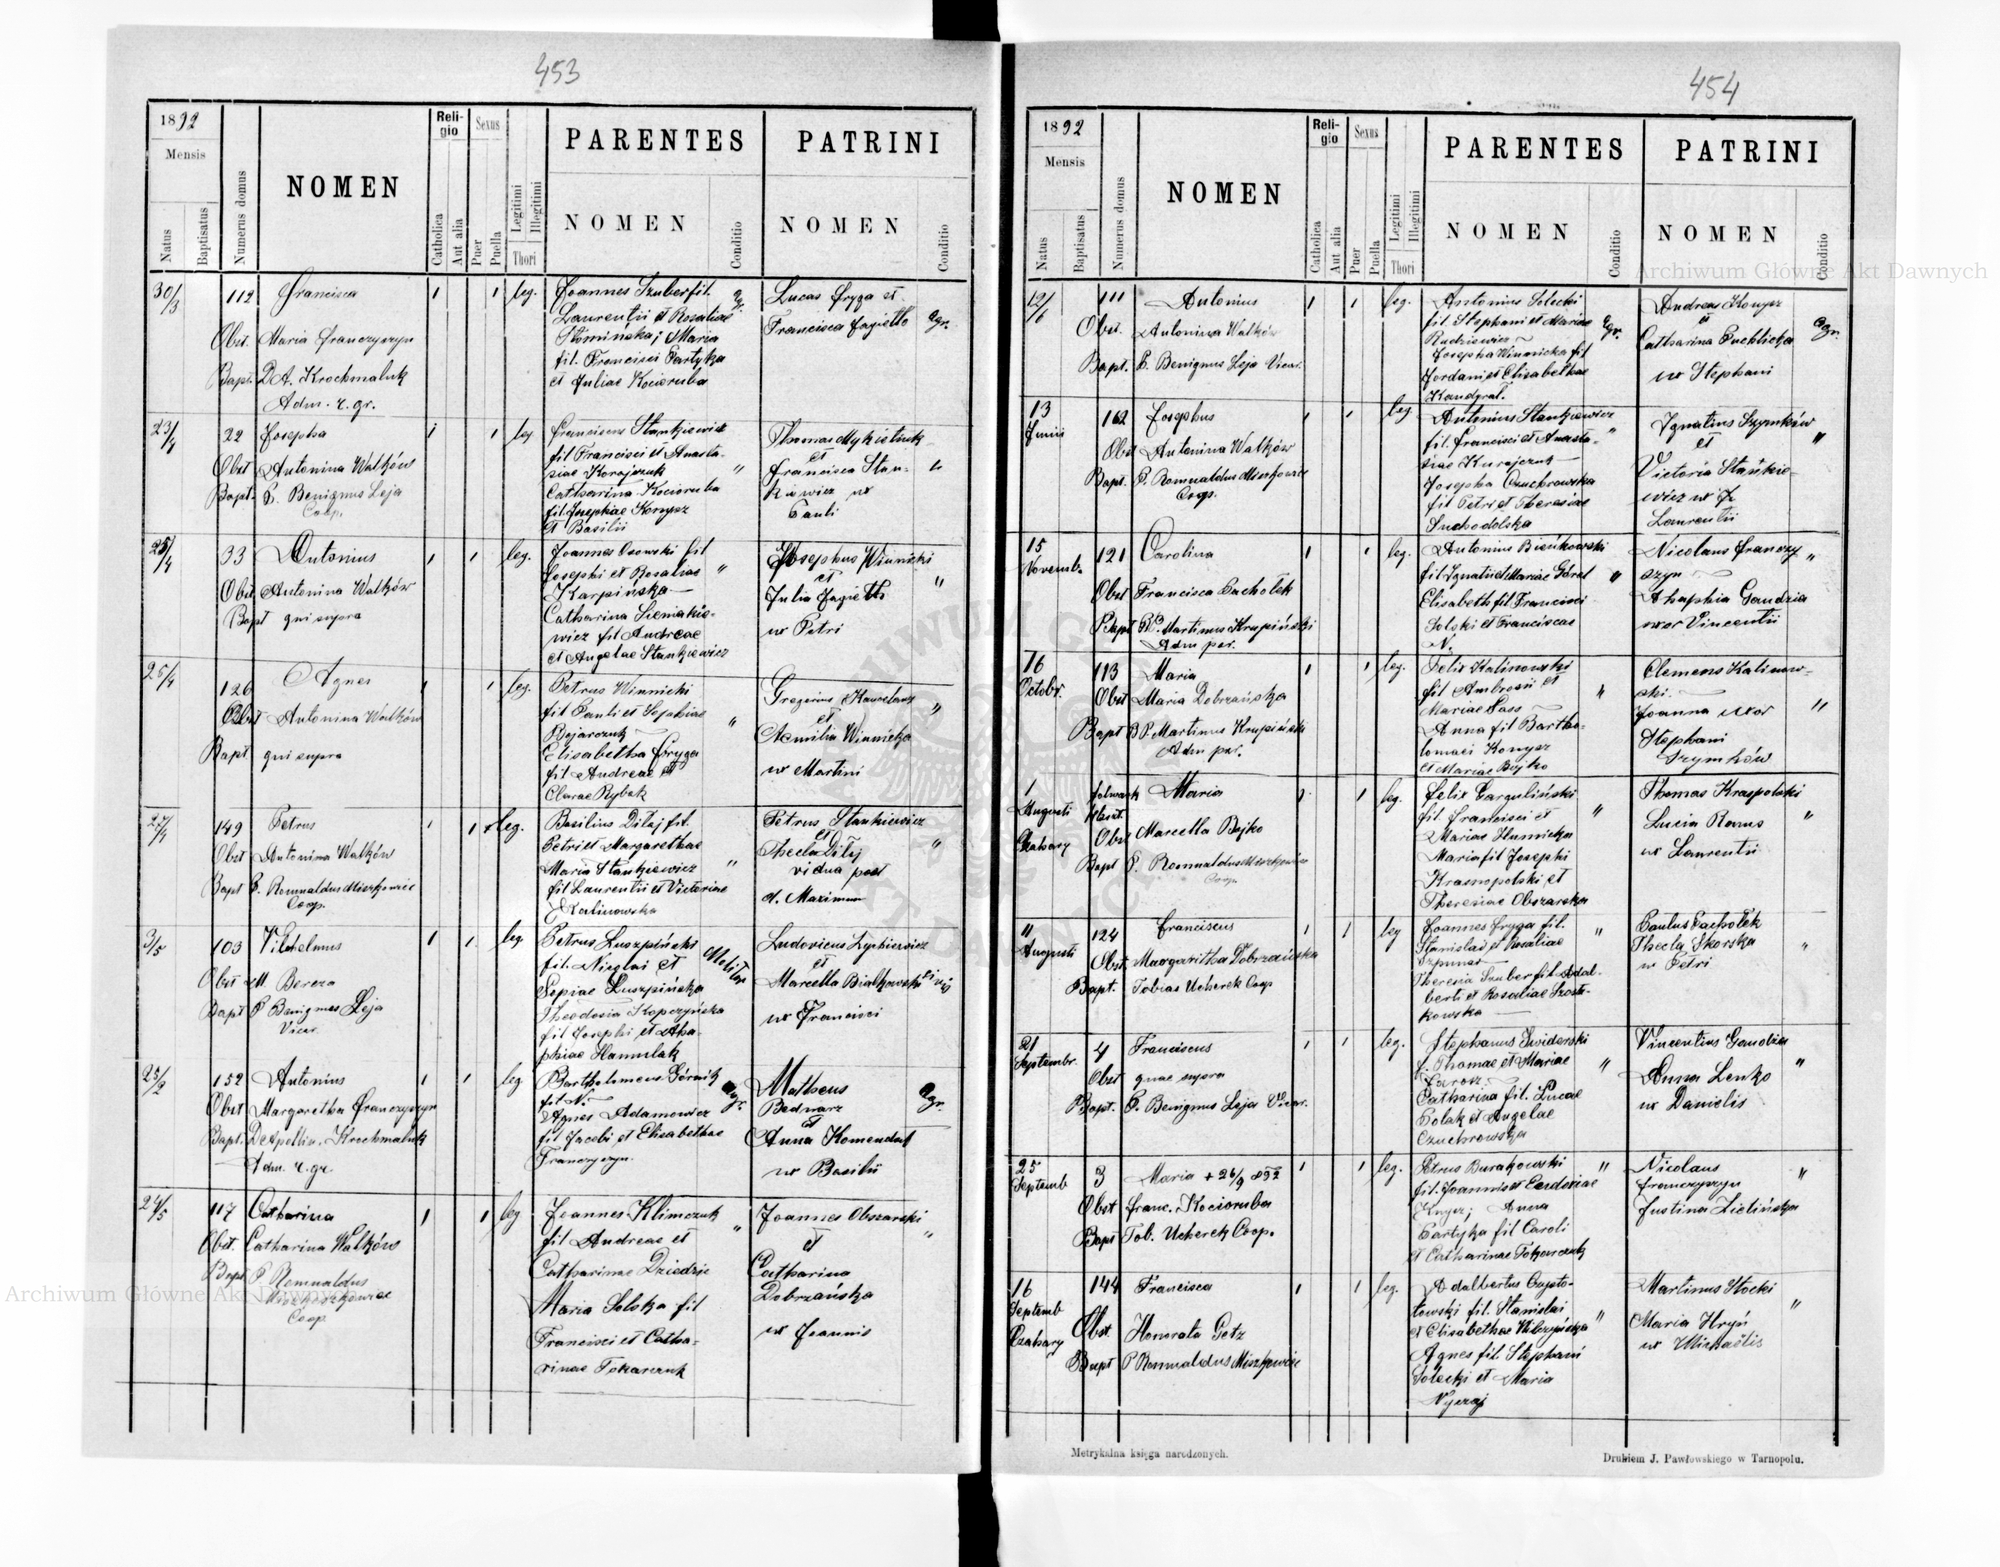 453
1892
Mensis
Natus
Baptisatus
Numerus domus
NOMEN
Religio
Catholica
Aut alia
Sexus
Puer
Puella
Legitimi
Illegitimi
Thori
PARENTES
NOMEN
Conditio
PATRINI
NOMEN
Conditio
30/3 112 Francisca 1 1 leg.
Obst. Maria Franczyszyn
Bapt. D.A. Krochmaluk
Adm. r. gr.
Joannes Szuber fil.
Laurentii et Rosaliae
Słomińska; Maria
fil. Francisci Partyka
et Juliae Kocioruba
agr.
Lucas Fryga et
Francisca Jagiełło agr.
23/4 22 Josepha 1 1 leg
Obst Antonina Walków
Bapt. P. Benignus Leja
Coop.
Franciscus Stankiewicz
fil Francisci et Anasta-
siae Korajczuk "
Catharina Kocioruba
fil Josephae Konysz
et Basilii
Thomas Mykietiuk
et
Francisca Stan-
kiewicz ux
Pauli
25/4 33 Antonius 1 1 leg.
Obst Antonina Walków
Bapt qui supra
Joannes Osowski fil
Josephi et Rosaliae "
Karpińska
Catharina Sieniakie-
wicz fil Andreae
et Angelae Stankiewicz
Josephus Winnicki
et "
Julia Jagiełło
ux Petri
25/4 126 Agnes 1 1 leg.
Obst Antonina Walków
Bapt qui supra
Petrus Winnicki
fil Pauli et Sophiae
Bojarczuk "
Elisabetha Fryga
fil Andreae et
Clarae Rybak
Gregorius
et "
Winnicka
ux Martini
27/4 149 Petrus 1 1 leg.
Obst Antonina Walków
Bapt P. Romualdus Miszkowicz
Coop.
Basilius Dilaj fil.
Petri et Margarethae
Maria Stankiewicz "
fil Laurentii et Victoriae
Kalinowska
Petrus Stankiewicz
et "
Thecla Dilij
vidua post
d. Maximum
3/5 103 Vilhelmus 1 1 leg.
Obst M. Bereza
Bapt P Benignus Leja
Vicar.
Petrus Łuszpiński
fil. Nicolai et
Łuszpińska
Theodosia Kopczyńska
fil Josephi et Aha-
phiae Hamulak
Ludovicus
et
Marcella Białkowski
ux Francisci
25/2 152 Antonius 1 1 leg
Obst Margaretha Franczyszyn
Bapt. Krochmaluk
Adm. r. gr.
Bartholomeus Górnik
fil N. agr.
Agnes Adamowicz
fil Jacobi et Elisabethae
Franczyszyn.
Matheus
Bednarz agr.
et
Anna Komendat
ux Basilii
24/5 117 Catharina 1 1 leg
Obst. Catharina Walków
Bapt P Romualdus
Coop
Joannes Klimczuk
fil Andreae et "
Catharinae Dziedzic
Maria Solska fil
Francisci et Catha-
rinae Tokarczuk
Joannes Obszarski
et "
Catharina
Dobrzańska
ux Joannis
454
1892
Mensis
Natus
Baptisatus
Numerus domus
NOMEN
Religio
Catholica
Aut alia
Sexus
Puer
Puella
Legitimi
Illegitimi
Thori
PARENTES
NOMEN
Conditio
PATRINI
NOMEN
Conditio
12/6 111 Antonius 1 1 leg.
Obst. Antonina Walków
Bapt. P. Benignus Leja Vicar.
Antonius Solecki
fil. Stephani et Mariae agr.
Kudziewicz
Josepha Winnicka fil
Jordani et Elisabethae
Andreas Konysz
et agr.
Catharina Puchlicka
ux Stephani
13 Junii 162 Josephus 1 1 leg
Obst Antonina Walków
Bapt. P. Romualdus Miszkowicz
Coop.
Antonius Stankiewicz
fil. Francisci et Anasta- "
siae Kurajczuk
Josepha Czuchrowska
fil Petri et Theresiae
Suchodolska
Ignatius Szymków
et "
Victoria Stankie-
wicz ux
Laurentii
15 Novemb. 121 Carolina 1 1 leg.
Obst Francisca Pacholek
Bapt BP. Martinus Krupiński
Adm par.
Antonius Bieńkowski
fil Ignatii et Mariae Góral "
Elisabeth fil Francisci
Solski et Franciscae
N.
Nicolaus Franczy- "
szyn
Ahaphia Gaudzia
uxor Vincentii
16 Octobr. 113 Maria 1 1 leg.
Obst Maria Dobrzańska
Bapt BP. Martinus Krupiński
Adm par.
Felix Kalinowski
fil Ambrosii et "
Mariae Sass
Anna fil Bartho-
lomaei Konysz
et Mariae Bojko
Clemens Kalinow-
ski.
Joanna uxor "
Stephani
Szymków
1 Augusti folwark Maria 1 1 leg.
Marcella Bojko
Obst
Bapt P. Romualdus Miszkowicz
Coop.
Felix Garguliński
fil. Francisci et "
Mariae Humicka
Maria fil Josephi
Krasnopolski et
Theresiae Obszarska
Thomas Kraspolski
Lucia Romus "
ux Laurentii
11 Augusti 124 Franciscus 1 1 leg
Obst Margaritha Dobrzańska
Bapt. Tobias Ucherek Coop
Joannes Fryga fil. "
Stanislai et Rosaliae
Szpunar
Theresia Szuber fil. Adal-
berti et Rosaliae Szost-
kowska
Paulus Pachołek
Thecla Skorska "
u Petri
21 Septembr. 4 Franciscus 1 1 leg.
Obst quae supra
Bapt. P. Benignus Leja Vicar.
Stephanus Świderski
f. Thomae et Mariae "
Catharina fil. Lucae
Polak et Angelae
Czuchrowska
Vincentius Gaudzia
Anna Lenko "
ux Danielis
25 Septemb 3 Maria + 26/9 892 1 1 leg.
Obst Franc. Kocioruba
Bapt Tob. Ucherek Coop.
Petrus Burakowski "
fil. Joannis et Eudoxiae
Anna
Partyka fil Caroli
et Catharinae Tokarczuk
Nicolaus "
Franczyszyn
Justina Zielińska
16 Septemb 144 Francisca 1 1 leg.
Obst. Honorata Getz
Bapt P Romualdus Miszkowicz
Adalbertus Często-
łowski fil. Stanislai
et Elisabethae Wilczyńska "
Agnes fil. Stephani
Solecki et Maria
Martinus Słocki
Maria Hryń "
ux Michaëlis
Metrykalna księga narodzonych.
Drukiem J. Pawłowskiego w Tarnopolu.
Archiwum Główne Akt Dawnych
Archiwum Główne Akt Dawnych